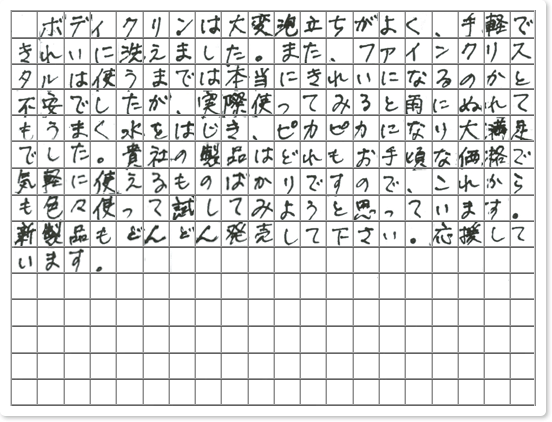 ボディクリンは大変泡立ちがよく、手軽で
きれいに洗えました。また、ファインクリス
タルは使うまでは本当にきれいになるのかと
不安でしたが、実際使ってみると雨にぬれて
もうまく水をはじき、ピカピカになり大満足
でした。貴社の製品はどれもお手頃な価格で
気軽に使えるものばかりですので、これから
も色々使って試してみようと思っています。
新製品もどんどん発売して下さい。応援して
います。